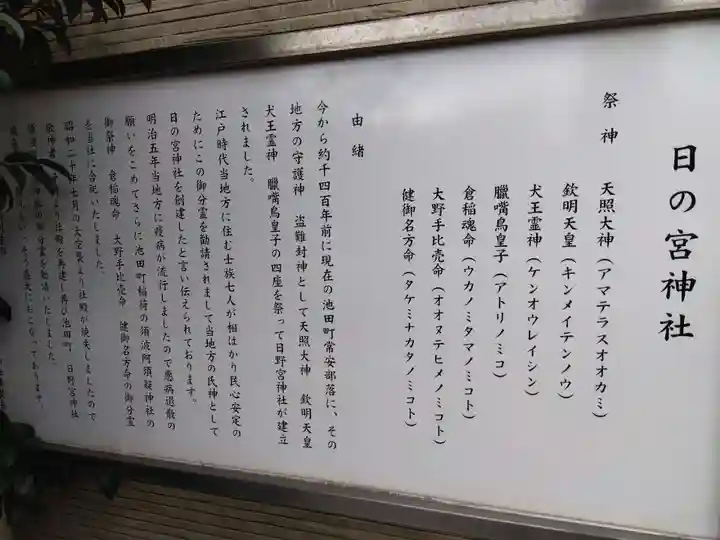 日の宮神社
祭神　天照大神（アマテラスオオカミ）
欽明天皇（キンメイテンノウ）
犬王霊神（ケンオウレイシン）
臘嘴鳥皇子（アトリノミコ）
倉稲魂命（ウカノミタマノミコト）
大野手比売命（オオヌテヒメノミコト）
健御名方命（タケミナカタノミコト）
由緒
今から約千四百年前に現在の池田町常安部落に、その
地方の守護神　盗難封神として天照大神　欽明天皇
犬王霊神　臘嘴鳥皇子の四座を祭って日野宮神社が建立
されました。
江戸時代当地方に住む士族七人が相はかり民心安定の
ためにこの御分霊を勧請されまして当地方の氏神として
日の宮神社を創建したと言い伝えられております。
明治五年当地方に疫病が流行しましたので悪病退散の
願いをこめてさらに池田町稲荷の須波阿須疑神社の
御祭神　倉稲魂命　大野手比売命　健御名方命の御分霊
を当社に合祀いたしました。
昭和二十年七月の大空襲より社殿が焼失しましたので
社殿を再建し再び池田町　日野宮神社
の御分霊を勧請いたしました。
盛大におこなっております。